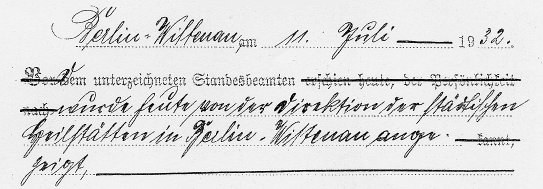 Berlin-Wittenau, am 11. Juli 1932.
Vor dem unterzeichneten Standesbeamten erschien heute, der Persönlichkeit
nach wurde heute von der Direktion der städtischen
Heilstätten in Berlin-Wittenau ange- kannt,
zeigt,